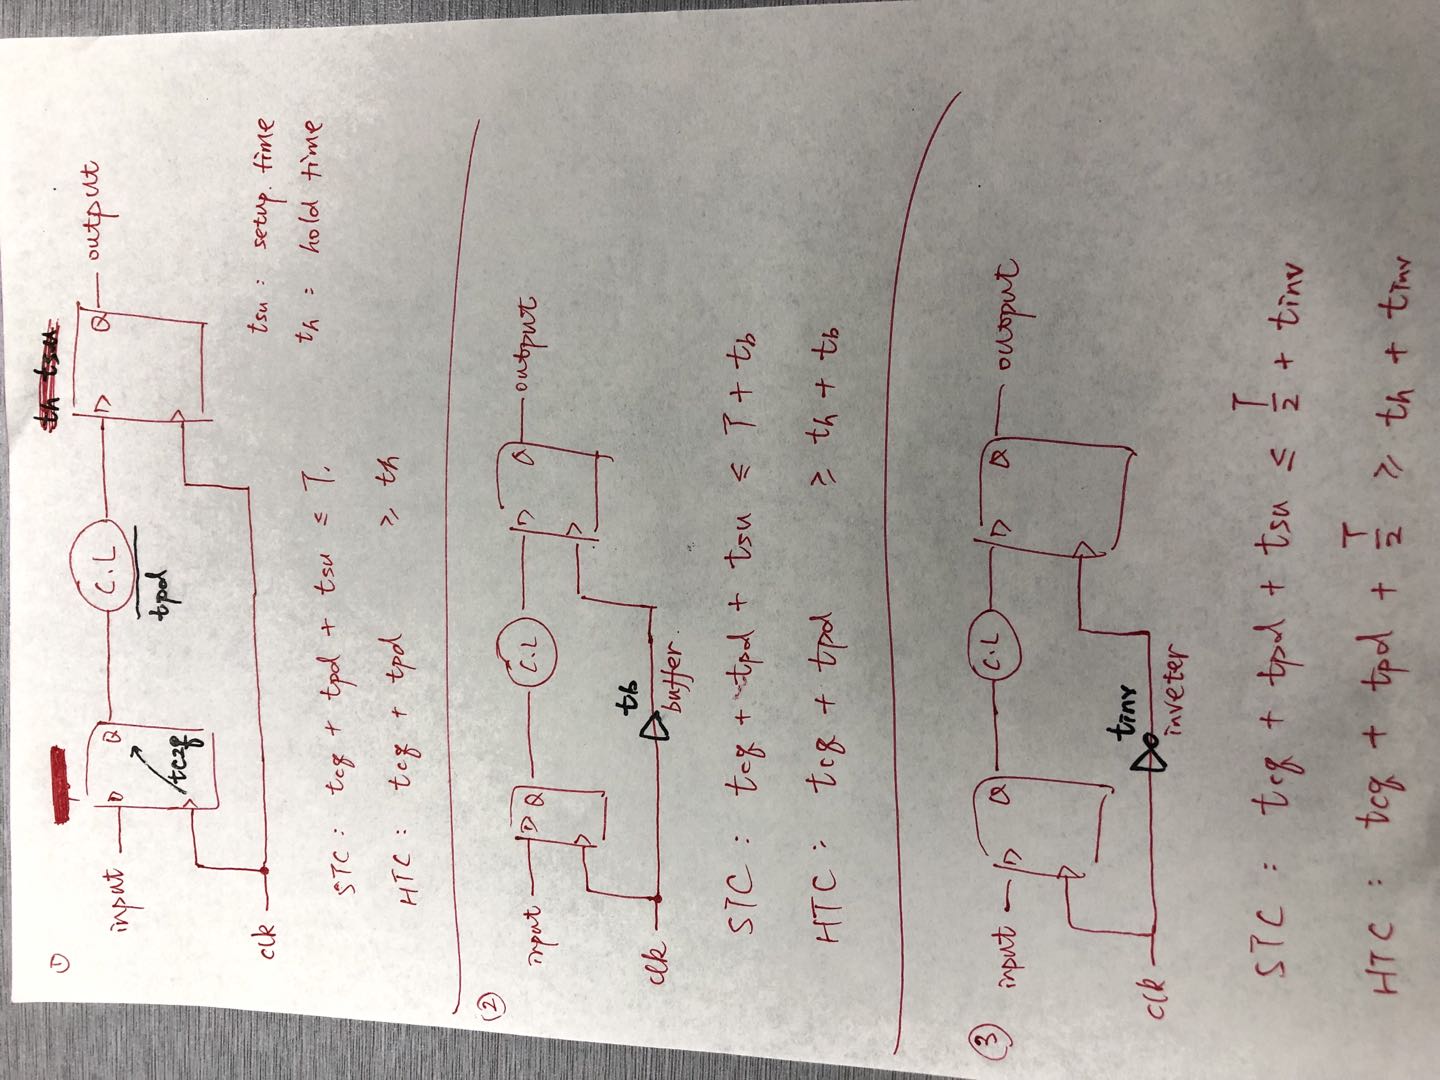 ①
th tsu
input D Q C.L D Q output
tc2q
tpd
clk
tsu : setup. time
th : hold time
STC : tcq + tpd + tsu ≤ T.
HTC : tcq + tpd ≥ th
②
input D Q C.L D Q output
tb
clk
buffer.
STC : tcq + tpd + tsu ≤ T + tb
HTC : tcq + tpd ≥ th + tb
③
input D Q C.L D Q output
tinv
clk
inveter
STC : tcq + tpd + tsu ≤ T/2 + tinv
HTC : tcq + tpd + T/2 ≥ th + tinv